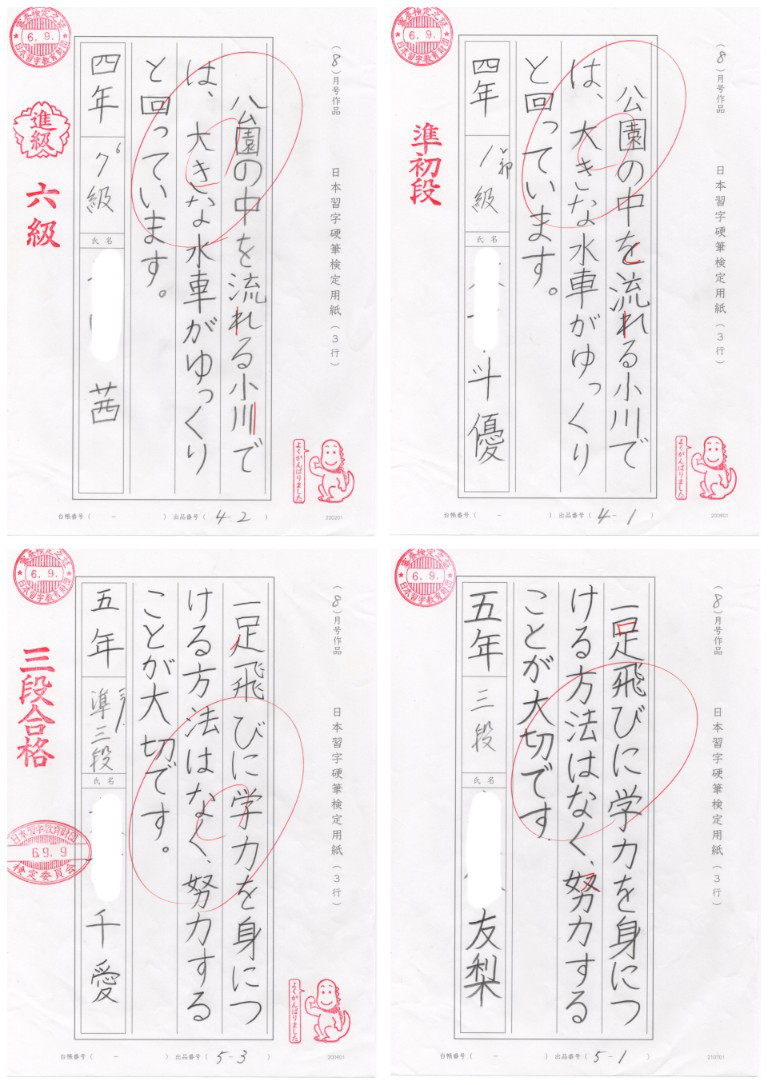 (8)月号作品
日本習字硬筆検定用紙(3行)
公園の中を流れる小川で
は、大きな水車がゆっくり
と回っています。
四年
級
氏名
茜
審査検定之証
6.9.
日本習字教育財団
進級
六級
よくがんばりました
台帳番号( - )
出品番号(4-2)
(8)月号作品
日本習字硬筆検定用紙(3行)
公園の中を流れる小川で
は、大きな水車がゆっくり
と回っています。
四年
級
氏名
斗優
審査検定之証
6.9.
日本習字教育財団
準初段
よくがんばりました
台帳番号( - )
出品番号(4-1)
(8)月号作品
日本習字硬筆検定用紙(3行)
一足飛びに学力を身につ
ける方法はなく、努力する
ことが大切です。
五年
準三段
氏名
千愛
審査検定之証
6.9.
日本習字教育財団
三段合格
日本習字教育財団
69.9
検定委員会
よくがんばりました
台帳番号( - )
出品番号(5-3)
(8)月号作品
日本習字硬筆検定用紙(3行)
一足飛びに学力を身につ
ける方法はなく、努力する
ことが大切です
五年
三段
氏名
友梨
審査検定之証
6.9.
日本習字教育財団
台帳番号( - )
出品番号(5-1)